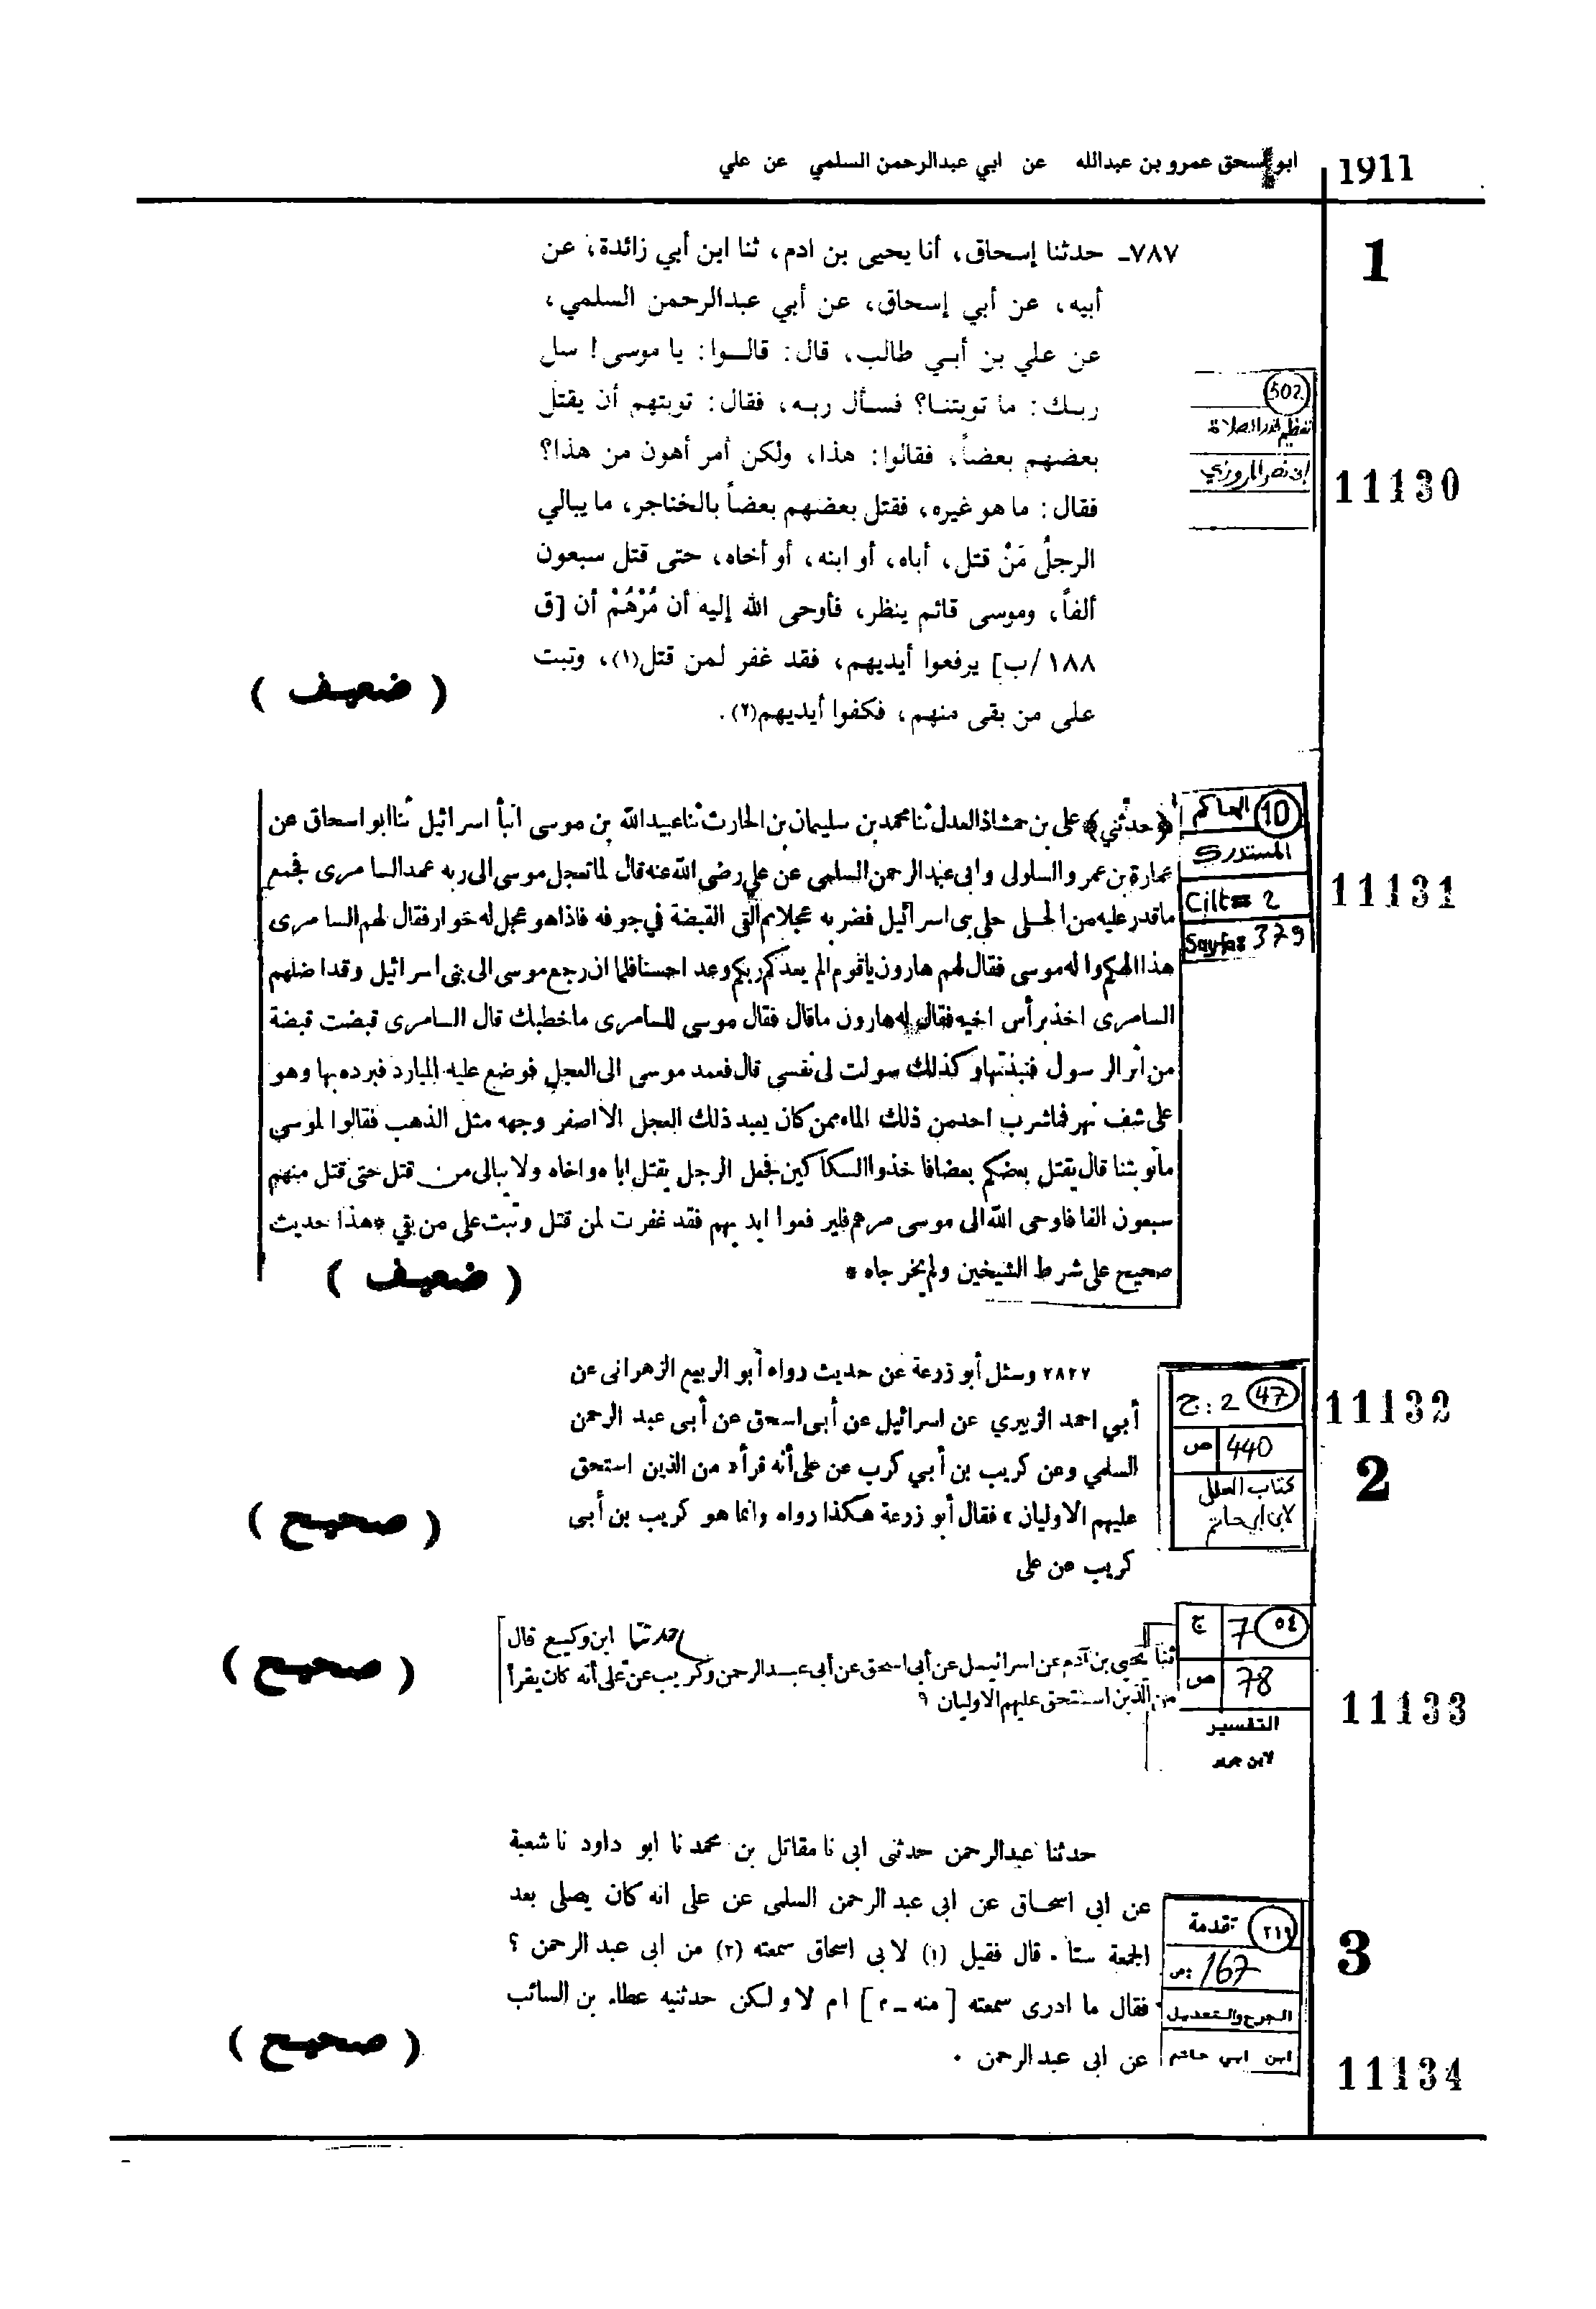 1911
ابو اسحق عمرو بن عبدالله عن ابي عبدالرحمن السلمي عن علي
1
٧٨٧ـ حدثنا إسحاق، أنا يحيى بن ادم، ثنا ابن أبي زائدة، عن
أبيه، عن أبي إسحاق، عن أبي عبدالرحمن السلمي،
عن علي بن أبي طالب، قال: قالوا: يا موسى! سل
ربك: ما توبتنا؟ فسأل ربه، فقال: توبتهم أن يقتل
بعضهم بعضاً، فقالوا: هذا، ولكن أمر أهون من هذا؟
فقال: ما هو غيره، فقتل بعضهم بعضاً بالخناجر، ما يبالي
الرجلُ مَنْ قتل، أباه، أو ابنه، أو أخاه، حتى قتل سبعون
ألفاً، وموسى قائم ينظر، فأوحى الله إليه أن مُرْهُمْ أن [ق
١٨٨/ب] يرفعوا أيديهم، فقد غفر لمن قتل(١)، وتبت
على من بقى منهم، فكفوا أيديهم(٢).
( ضعيف )
502
تعظيم قدر الصلاة
ابن نصر المروزي
11130
﴿حدثني﴾ علي بن حمشاذ العدل ثنا محمد بن سليمان بن الحارث ثنا عبيد الله بن موسى انبأ اسرائيل ثنا ابو اسحاق عن
عمارة بن عمرو السلولى وابى عبد الرحمن السلمى عن علي رضي الله عنه قال لما تعجل موسى الى ربه عمد السامرى فجمع
ما قدر عليه من الحلى حلى بنى اسرائيل فضربه عجلا ثم ألقى القبضة في جوفه فاذا هو عجل له خوار فقال لهم السامرى
هذا الهكم واله موسى فقال لهم هارون ياقوم الم يعدكم ربكم وعدا حسنا فلما ان رجع موسى الى بنى اسرائيل وقد اضلهم
السامرى اخذ برأس اخيه فقال له هارون ماقال فقال موسى للسامرى ماخطبك قال السامرى قبضت قبضة
من اثر الرسول فنبذتها وكذلك سولت لى نفسي قال فعمد موسى الى العجل فوضع عليه المبارد فبرده بها وهو
على شف نهر فما شرب احد من ذلك الماء ممن كان يعبد ذلك العجل الا اصفر وجهه مثل الذهب فقالوا لموسي
ما توبتنا قال يقتل بعضكم بعضا فاخذوا السكاكين فجعل الرجل يقتل اباه واخاه ولا يبالى من قتل حتى قتل منهم
سبعون الفا فاوحى الله الى موسى مرهم فلير فعوا ايديهم فقد غفرت لمن قتل وتبت على من بقي * هذا حديث
صحيح على شرط الشيخين ولم يخرجاه *
( ضعيف )
10 الحاكم
المستدرك
Cilt= 2
Sayfa: 379
11131
٢٨٢٧ وسئل أبو زرعة عن حديث رواه أبو الربيع الزهرانى عن
أبي احمد الزبيري عن اسرائيل عن أبى اسحق عن أبى عبد الرحمن
السلمي وعن كريب بن أبي كرب عن على أنه قرأ « من الذين استحق
عليهم الاوليان » فقال أبو زرعة هكذا رواه وانما هو كريب بن أبى
كريب عن على
( صحيح )
47 ج: 2
440 ص
كتاب العلل
لابن ابي حاتم
11132
2
حدثنا ابن وكيع قال
ثنا يحيى بن آدم عن اسرائيل عن أبى اسحق عن أبى عبد الرحمن وكريب عن على أنه كان يقرأ
من الذين استحق عليهم الاوليان
( صحيح )
٥٤ 7 ج
78 ص
التفسير
لابن جرير
11133
حدثنا عبدالرحمن حدثنى ابى نا مقاتل بن محمد نا ابو داود نا شعبة
عن ابى اسحاق عن ابى عبد الرحمن السلمى عن على انه كان يصلى بعد
الجمعة ستا . قال فقيل (١) لابى اسحاق سمعته (٢) من ابى عبد الرحمن ؟
فقال ما ادرى سمعته [ منه ـ م ] ام لا ولكن حدثنيه عطاء بن السائب
عن ابى عبدالرحمن .
( صحيح )
٢١٩ تقدمة
167 ص:
الجرح والتعديل
ابن ابي حاتم
3
11134